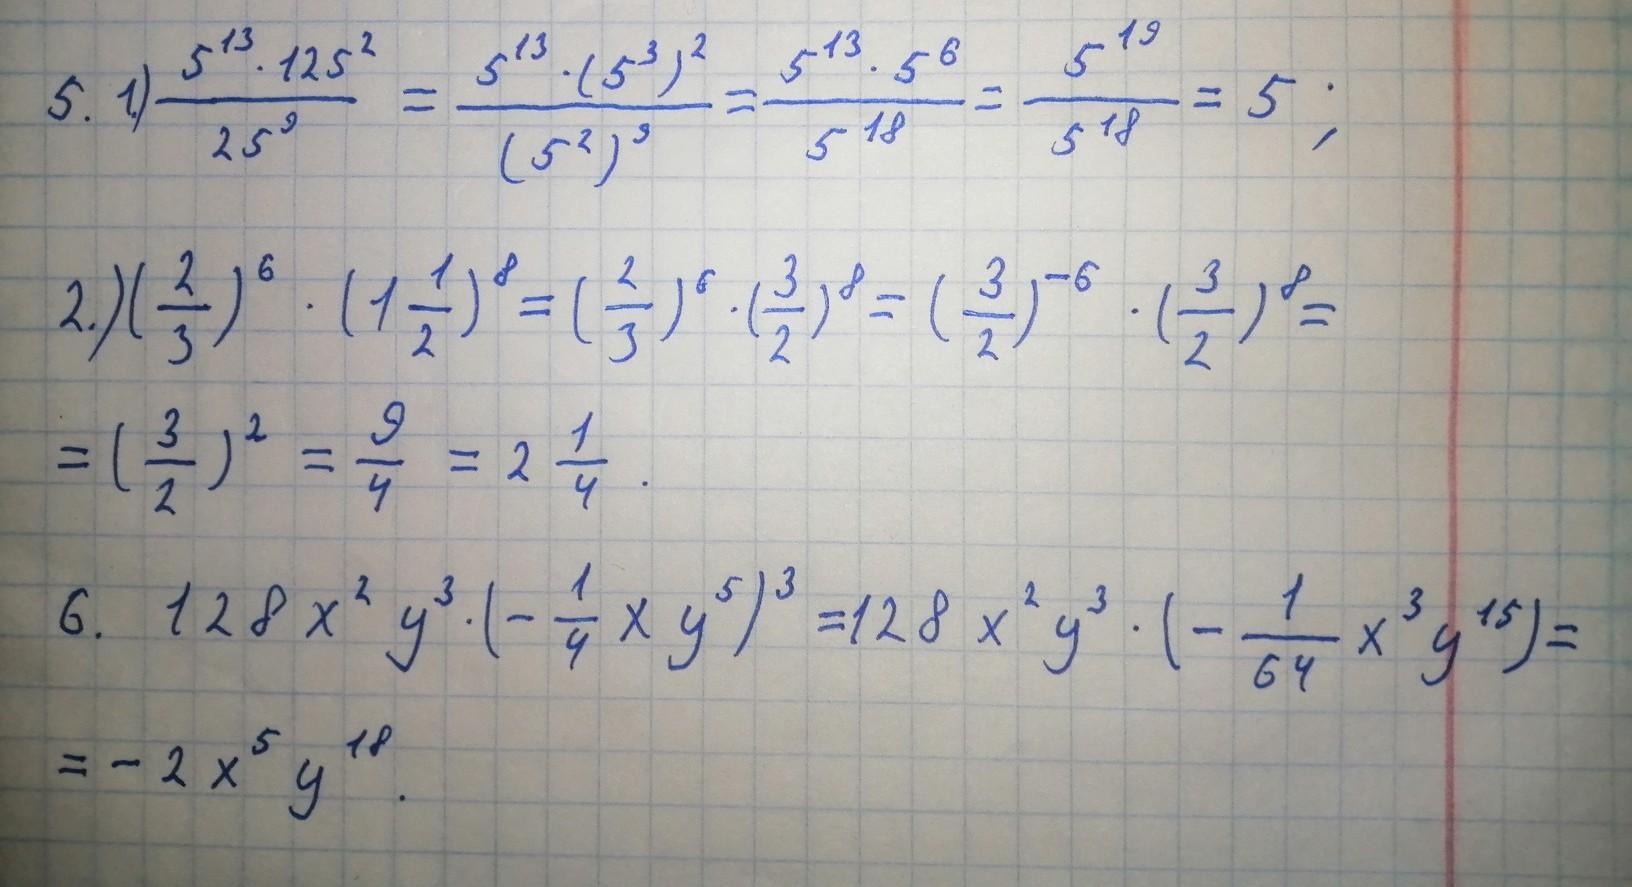 5. 1.) 5^13 · 125^2 / 25^9 = 5^13 · (5^3)^2 / (5^2)^9 = 5^13 · 5^6 / 5^18 = 5^19 / 5^18 = 5 ;
2.) (2/3)^6 · (1 1/2)^8 = (2/3)^6 · (3/2)^8 = (3/2)^-6 · (3/2)^8 =
= (3/2)^2 = 9/4 = 2 1/4 .
6. 128 x^2 y^3 · (- 1/4 x y^5)^3 = 128 x^2 y^3 · (- 1/64 x^3 y^15) =
= - 2 x^5 y^18 .